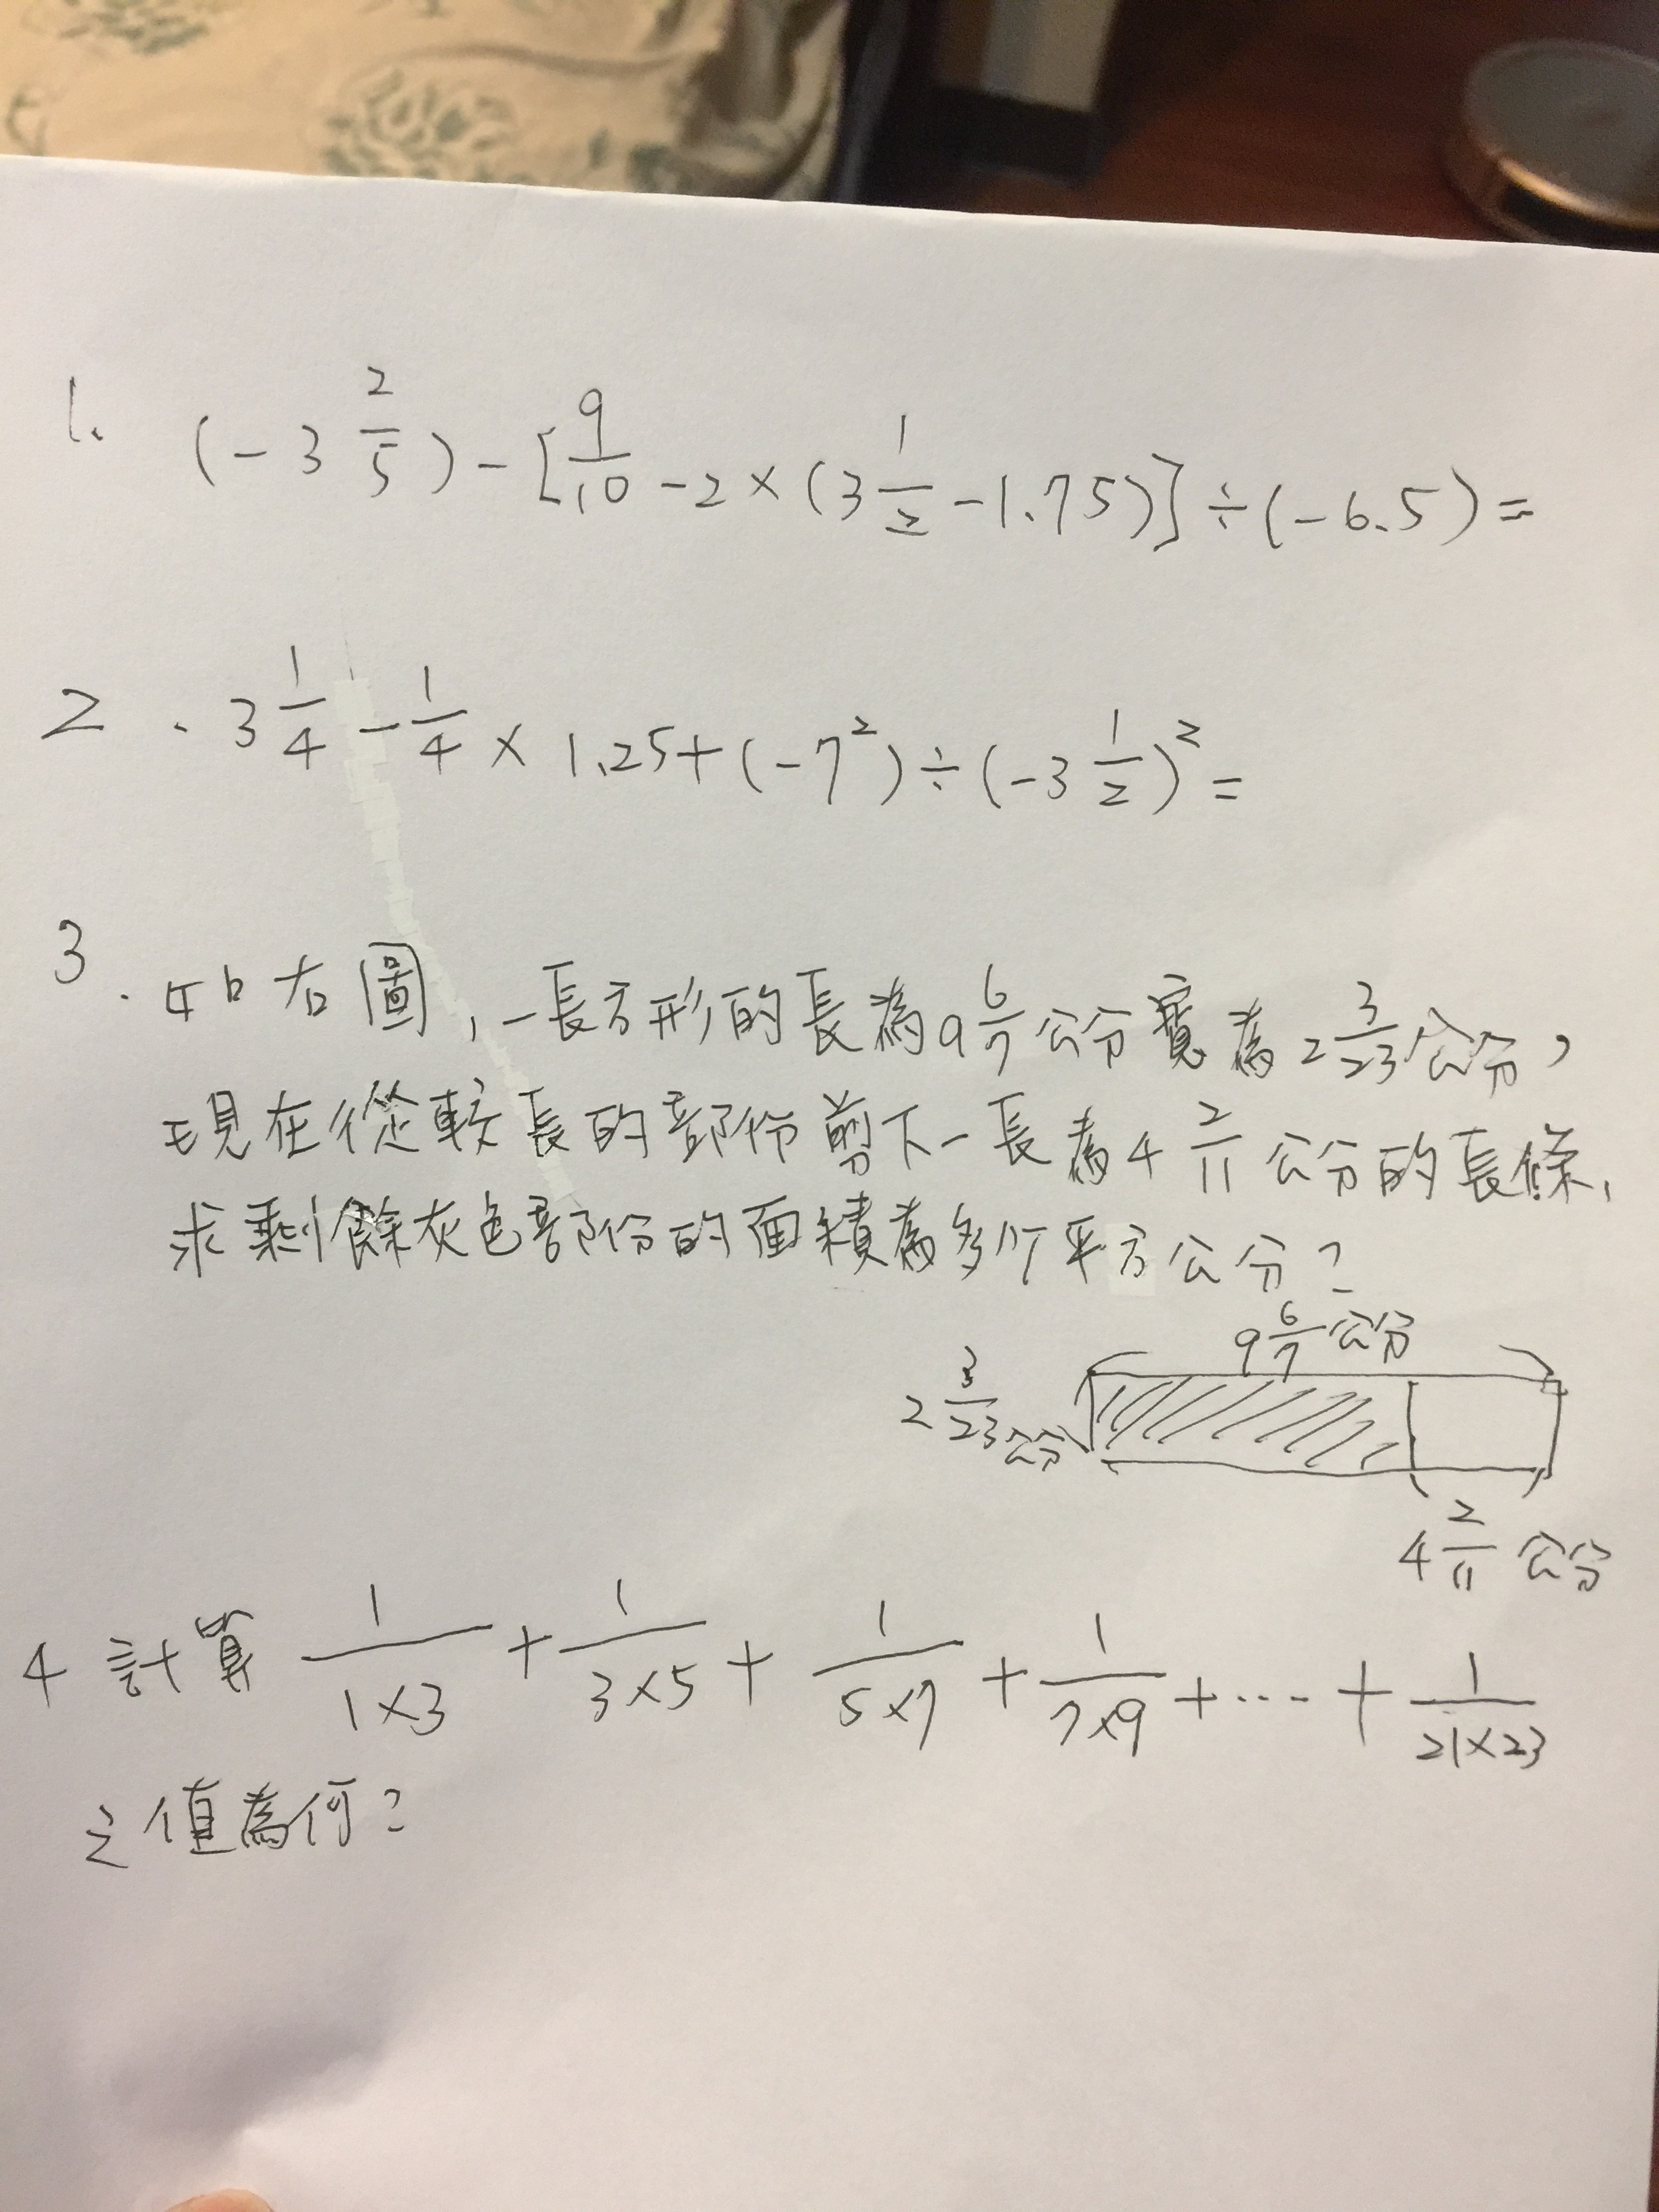 1. (-3 2/5) - [9/10 - 2 × (3 1/2 - 1.75)] ÷ (-6.5) =
2. 3 1/4 - 1/4 × 1.25 + (-7²) ÷ (-3 1/2)² =
3. 如右圖,一長方形的長為9 6/7公分寬為2 3/23公分,
現在從較長的部份剪下一長為4 2/11公分的長條,
求剩餘灰色部份的面積為多少平方公分?
9 6/7公分
2 3/23公分
4 2/11公分
4 計算 1/(1×3) + 1/(3×5) + 1/(5×7) + 1/(7×9) + ... + 1/(21×23)
之值為何?